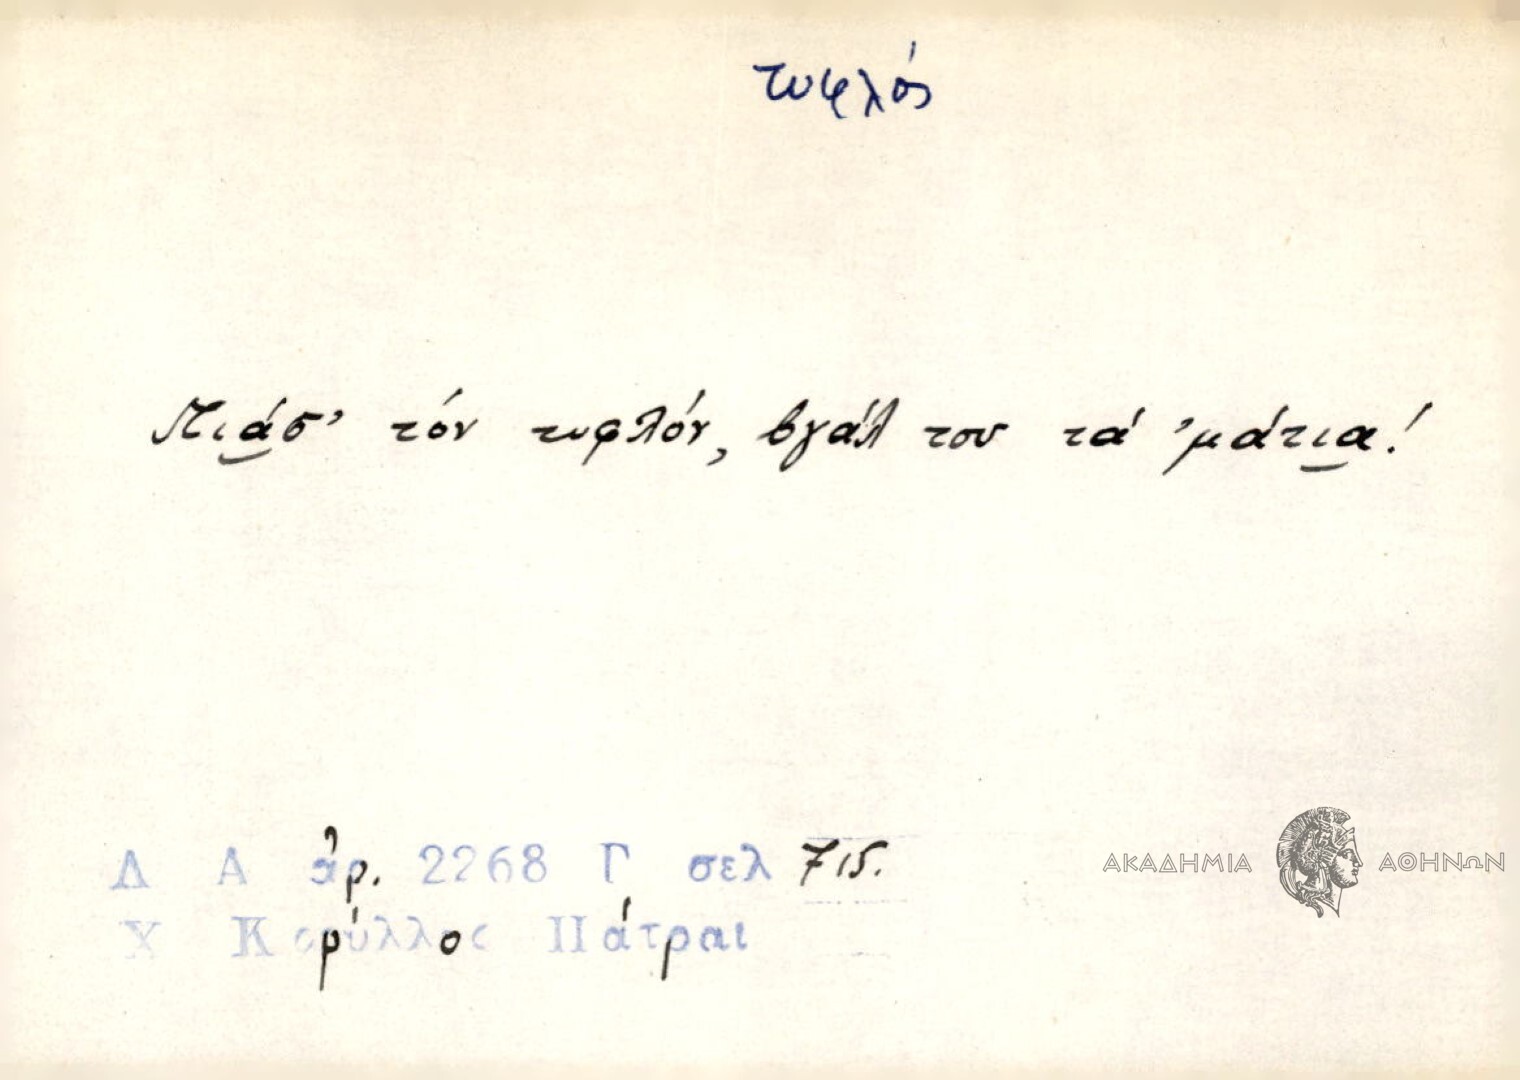 τυφλός
Πιάσ' τόν τυφλόν, βγάλ του τά 'μάτια!
Λ Α ἀρ. 2268 Γ σελ 715.
Χ Κορύλλος Πάτραι
ΑΚΑΔΗΜΙΑ ΑΘΗΝΩΝ